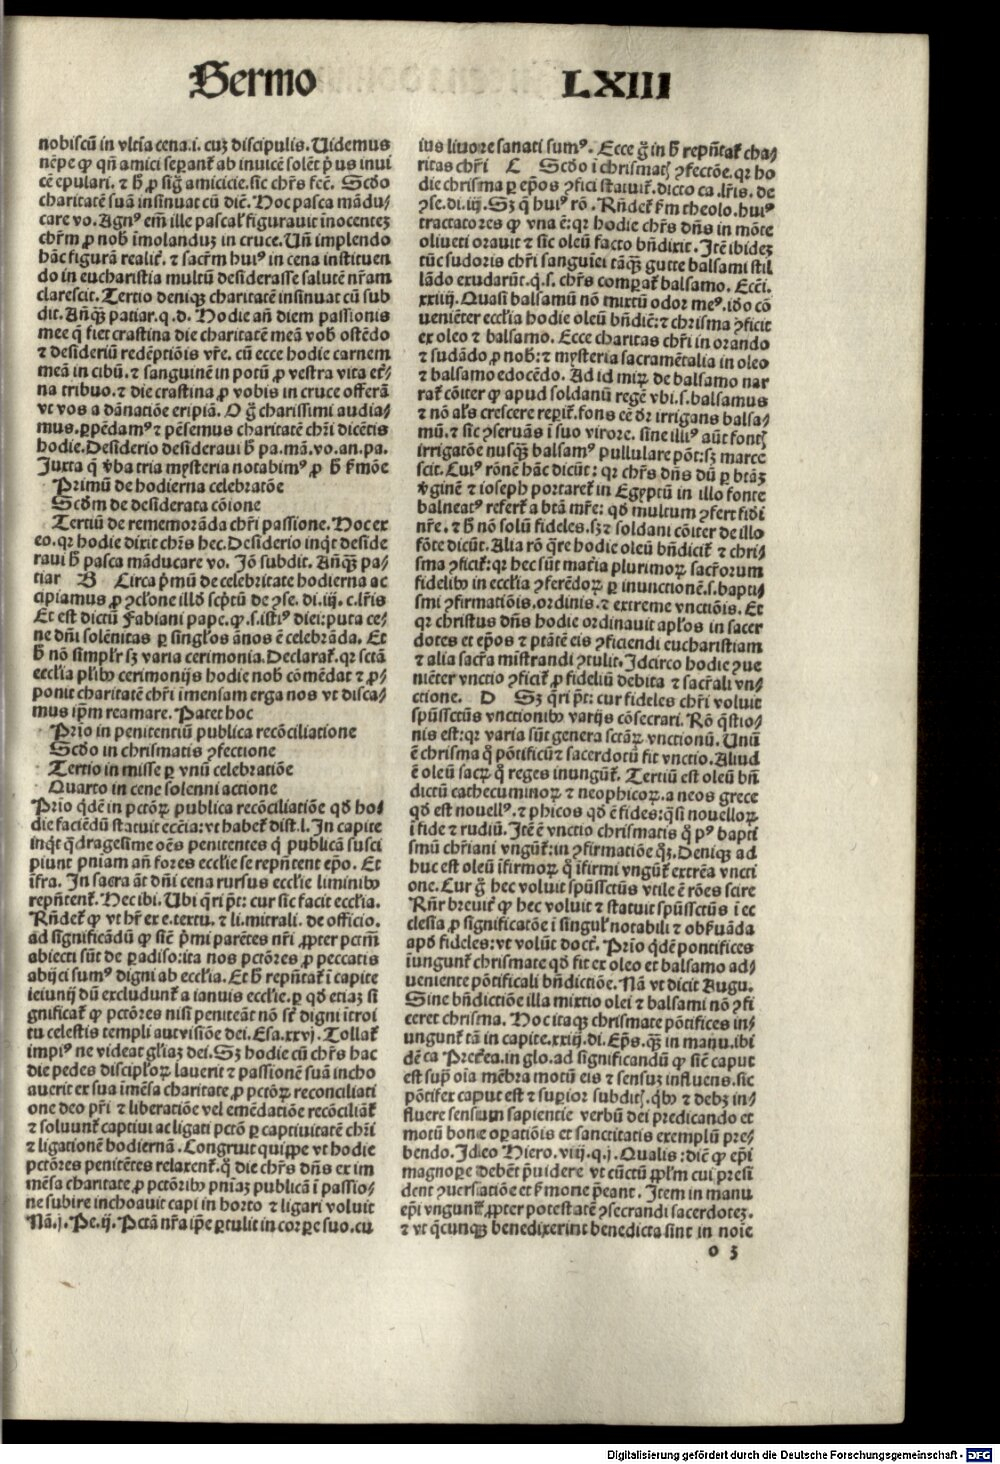 Sermo LXIII
nobiscū in vltīa cena.i. cuȝ discipulis. Uidemus
nēpe ꝙ qn̄ amici seꝑant᷑ ab inuicē solēt pͥus inui
cē epulari. ⁊ h̄ ꝓ siḡ amicicie. sic chr̄s fec̄. Scd̄o
charitatē suā insinuat cū dic̄t. Hoc pasca mādu⸗
care vo. Agnꝰ em̄ ille pascal᷑ figurauit īnocentez
chr̄m ꝓ nob᷑ īmolanduȝ in cruce. Un̄ implendo
hāc figurā realit᷑. ⁊ sacr̄m huiꝰ in cena instituen
do in eucharistia multū desiderasse salutē nr̄am
clarescit. Tertio deniqȝ charitatē insinuat cū sub
dit. An̄qȝ patiar. q.d. Hodie an̄ diem passionis
mee q̄ fiet crastina die charitatē meā vob᷑ ostēdo
⁊ desideriū redēptiōis vr̄e. cū ecce hodie carnem
meā in cibū. ⁊ sanguinē in potū ꝓ vestra vita et᷑⸗
na tribuo. ⁊ die crastina ꝓ vobis in cruce offerā
vt vos a dānatiōe eripiā. O ḡ charissimi audia⸗
mus. ꝑpēdamꝰ ⁊ pēsemus charitatē chr̄i dicētis
hodie. Desiderio desideraui h̄ pa. mā. vo. an. pa.
Juxta q̄ v̄ba tria mysteria notabimꝰ ꝓ h̄ ẜmōe
Primū de hodierna celebratōe
Scd̄m de desiderata cōione
Tertiū de rememorāda chr̄i passione. Hoc ex
eo. qꝛ hodie dixit chr̄s hec. Desiderio inqͥt deside
raui h̄ pasca māducare vo. Jō subdit. An̄qȝ pa⸗
tiar B Circa pͥmū de celebritate hodierna ac
cipiamus ꝓ ꝯclōne illd̄ scpͥtū de ꝯse. di. iij. c. lr̄is
Et est dictū Fabiani pape. ꝙ .s. istiꝰ diei: puta ce⸗
ne dn̄i solēnitas ꝑ singl̄os ānos ē celebrāda. Et
h̄ nō simplr̄ sȝ varia cerimonia. Declarat᷑. qꝛ sctā
eccl̄ia pl̄ibꝰ cerimonijs hodie nob᷑ cōmēdat ⁊ ꝓ⸗
ponit charitatē chr̄i īmensam erga nos vt disca⸗
mus ip̄m reamare. Patet hoc
Prīo in penitentiū publica recōciliatione
Scd̄o in chrismatis ꝯfectione
Tertio in misse ꝑ vnū celebratiōe
Quarto in cene solenni actione
Prīo qͥdē in pctōꝝ publica recōciliatiōe qd̄ ho⸗
die faciēdū statuit ecc̄ia: vt habet᷑ dist. l. In capite
inqͥt qͣdragesime oēs penitentes q̄ publicā susci
piunt pniam an̄ fores eccl̄ie se repn̄tent ep̄o. Et
īfra. Jn sacra āt dn̄i cena rursus eccl̄ie liminibꝰ
repn̄tent᷑. Hec ibi. Ubi qͥri pt̄: cur sic facit eccl̄ia.
Rn̄det᷑ ꝙ vt hr̄ ex e. textu. ⁊ li. mitrali. de officio.
ad significādū ꝙ sic̄ pͥmi parētes nr̄i ꝓpter pctm̄
abiecti sūt de ꝑadiso: ita nos pctōres ꝓ peccatis
abijci sumꝰ digni ab eccl̄ia. Et h̄ repn̄tat᷑ ī capite
ieiunij dū excludunt᷑ a ianuis eccl̄ie. ꝑ qd̄ etiaȝ si
gnificat᷑ ꝙ pctōres nisi peniteāt nō sr̄t digni ītroi
tu celestis templi aut visiōe dei. Esa. xxvj. Tollat᷑
impiꝰ ne videat gl̄iaȝ dei. Sȝ hodie cū chr̄s hac
die pedes discipl̄oꝝ lauerit ⁊ passionē suā incho
auerit ex sua īmēsa charitate ꝓ pctōꝝ reconciliati
one deo pr̄i ⁊ liberatiōe vel emēdatiōe recōciliāt᷑
⁊ soluunt᷑ captiui ac ligati pctō ꝑ captiuitatē chr̄i
⁊ ligationē hodiernā. Congruit quippe vt hodie
pctōres penitētes relaxent᷑. qͣ die chr̄s dn̄s ex im
mēsa charitate ꝓ pctōribꝰ pniaȝ publicā ī passio⸗
ne subire inchoauit capi in horto ⁊ ligari voluit
Nā. j. Pe. ij. Pctā nr̄a ip̄e ꝑtulit in corꝑe suo. cu
ius liuore sanati sumꝰ. Ecce ḡ in h̄ repn̄tat᷑ cha⸗
ritas chr̄i C Scd̄o ī chrismatꝭ ꝯfectōe. qꝛ ho
die chrisma ꝑ ep̄os ꝯfici statuit᷑. dicto ca. lr̄is. de
ꝯse. di. iij. Sȝ q̄ huiꝰ rō. Rn̄det᷑ ẜm theolo. huiꝰ
tractatores ꝙ vna ē: qꝛ hodie chr̄s dn̄s in mōte
oliueti orauit ⁊ sic oleū facto bn̄dixit. Jtē ibideȝ
tūc sudoris chr̄i sanguīei tāqȝ gutte balsami stil
lādo exudarūt. q̄.s. chr̄s comparat᷑ balsamo. Ecc̄i.
xxiiij. Quasi balsamū nō mixtū odor meꝰ. idō cō
ueniēter eccl̄ia hodie oleū bn̄dic̄t: ⁊ chrisma ꝯficit
ex oleo ⁊ balsamo. Ecce charitas chr̄i in orando
⁊ sudādo ꝓ nob᷑: ⁊ mysteria sacramētalia in oleo
⁊ balsamo edocēdo. Ad id miꝝ de balsamo nar
rat᷑ cōiter ꝙ apud soldanū regē vbi. s. balsamus
⁊ nō al̄s crescere reꝑit᷑. fons eē dr̄ irrigans balsa⸗
mū. ⁊ sic ꝯseruās ī suo virore. sine illiꝰ aūt fontꝭ
irrigatōe nusqȝ balsamꝰ pullulare pōt: sȝ marce
scit. Cuiꝰ rōnē hāc dicūt: qꝛ chr̄s dn̄s dū ꝑ btāȝ
v̄ginē ⁊ ioseph portaret᷑ in Egyptū in illo fonte
balneatꝰ refert᷑ a btā mr̄e: qd̄ multum ꝯfert fidī
nr̄e. ⁊ h̄ nō solū fideles. sȝ ⁊ soldani cōiter de illo
fōte dicūt. Alia rō qͣre hodie oleū bn̄dicit᷑ ⁊ chri⸗
sma ꝯficit᷑: qꝛ hec sūt mat̄ia plurimoꝝ sacr̄orum
fidelibꝰ in eccl̄ia ꝯferēdoꝝ ꝑ inunctionē. s. bapti⸗
smi ꝯfirmatiōis. ordinis. ⁊ extreme vnctiōis. Et
qꝛ christus dn̄s hodie ordinauit apl̄os in sacer
dotes et ep̄os ⁊ ptātē eis ꝯficiendi eucharistiam
⁊ alia sacr̄a mīstrandi ꝯtulit. Jdcirco hodie ꝯue
niēter vnctio ꝯficit᷑ ꝓ fideliū debita ⁊ sacr̄ali vn⸗
ctione. D Sȝ qͥri pt̄: cur fideles chr̄i voluit
spūssctūs vnctionibꝰ varijs cōsecrari. Rō qͣstio⸗
nis est: qꝛ varia sūt genera sctāꝝ vnctionū. Unū
ē chrisma qͦ pōtificū ⁊ sacerdotū fit vnctio. Aliud
ē oleū sacꝝ qͦ reges inungūt᷑. Tertiū est oleū bn̄
dictū cathecuminoꝝ ⁊ neophicoꝝ. a neos grece
qd̄ est nouellꝰ. ⁊ phicos qd̄ ē fides: qͣsi nouelloꝝ
ī fide ⁊ rudiū. Jtē ē vnctio chrismatis qͣ pꝰ bapti
smū chr̄iani vngūt᷑: in ꝯfirmatiōe qͦȝ. Deniqȝ ad
huc est oleū īfirmoꝝ qͦ īfirmi vngūt᷑ extrēa vncti
one. Cur ḡ hec voluit spūssctūs vtile ē rōes scire
Rn̄r breuit᷑ ꝙ hec voluit ⁊ statuit spūssctūs ī ec
clesia ꝓ significatōe ī singul᷑ notabili ⁊ obẜuāda
apd̄ fideles: vt volūt doct᷑. Prīo qͥdē pontifices
īungunt᷑ chrismate qd̄ fit ex oleo et balsamo ad⸗
ueniente pōtificali bn̄dictiōe. Nā vt dicit Augu.
Sine bn̄dictiōe illa mixtio olei ⁊ balsami nō ꝯfi
ceret chrisma. Hoc itaqȝ chrismate pōtifices in⸗
ungunt᷑ tā in capite. xxiij. di. Ep̄s. qȝ in manu. ibi
dē ca Preterea. in glo. ad significandū ꝙ sic̄ caput
est supͣ oīa mēbra motū eis ⁊ sensuȝ influens. sic
pōtifex caput est ⁊ suꝑior subditꝭ. qͥbꝰ ⁊ debȝ in⸗
fluere sensum sapientie verbū dei predicando et
motū bone oꝑatiōis et sanctitatis exemplū pre⸗
bendo. Jdeo Hiero. viij. q. j. Qualis: dic̄t ꝙ ep̄i
magnopere debēt pͥuidere vt cūctū ppl̄m cui presi
dent ꝯuersatiōe et ẜmone pͥeant. Jtem in manu
ep̄i vngunt᷑ ꝓpter potestatē ꝯsecrandi sacerdoteȝ.
⁊ vt q̄cunqȝ benedixerint benedicta sint in noīe
o 3
Digitalisierung gefördert durch die Deutsche Forschungsgemeinschaft - DFG